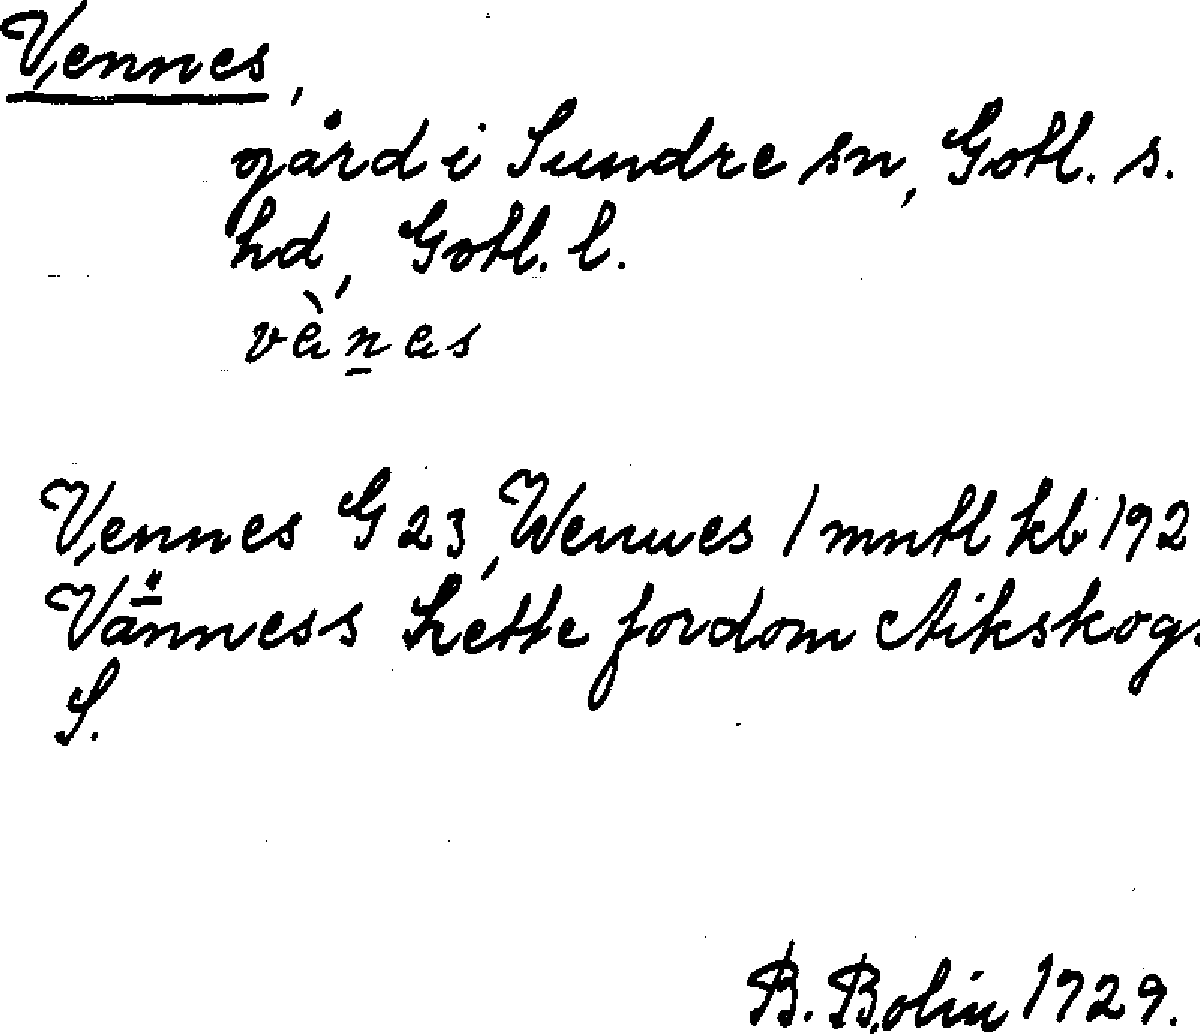 Vennes,
gård i Sundre sn, Gotl. s.
hd, Gotl. l.
vènes
Vennes G 23, Wennes 1 mntl kb 192
Vänness hette fordom Aikskogs
S.
B. Bolin 1929.